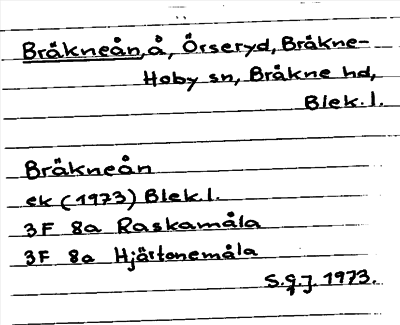 Bräkneån, å, Örseryd, Bräkne-
Hoby sn, Bräkne hd,
Blek. l.
Bräkneån
ek (1973) Blek. l.
3F 8a Raskamåla
3F 8a Hjärtonemåla
S.g.j. 1973.